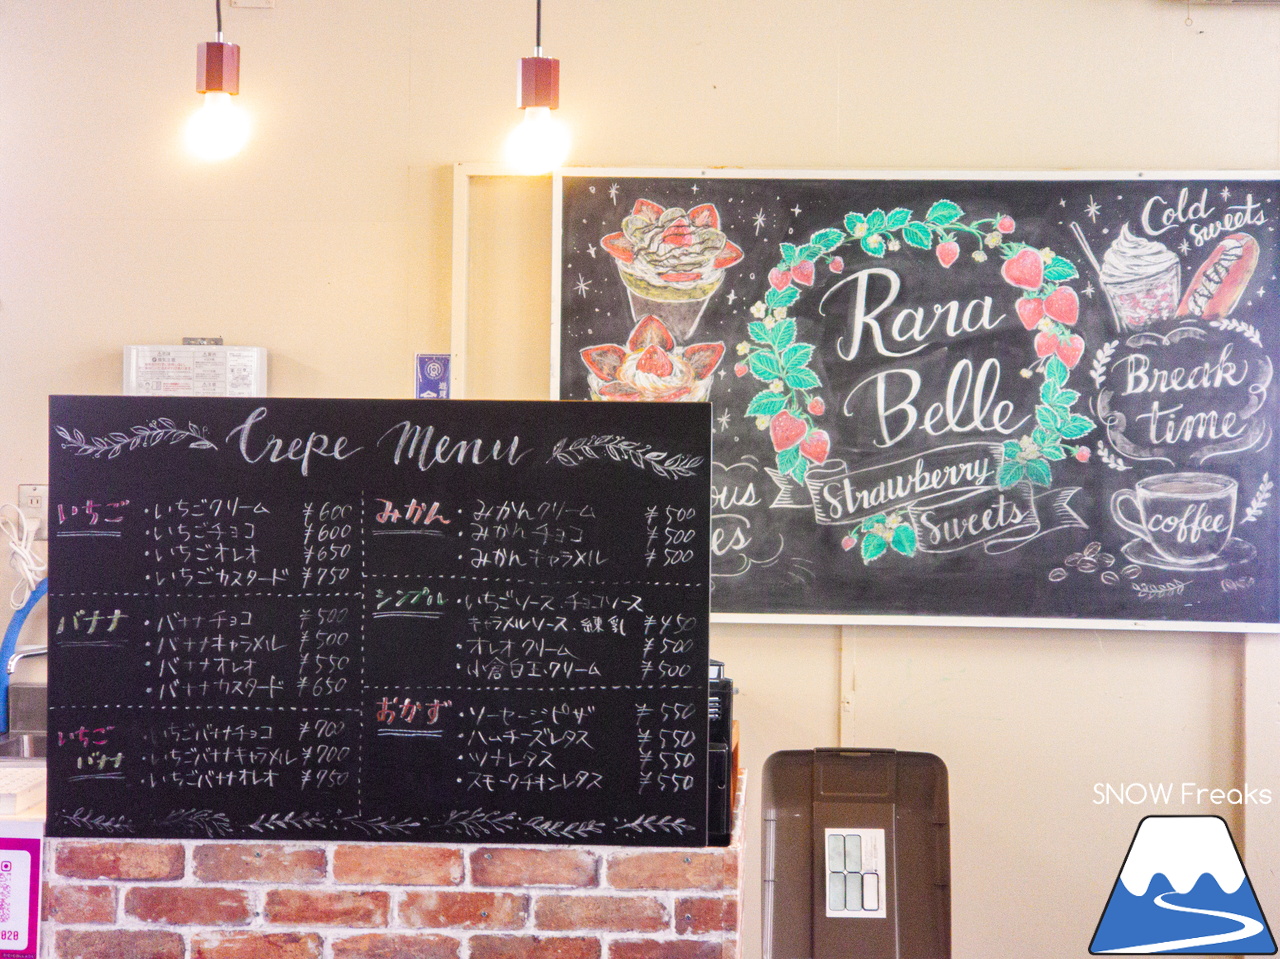 Crepe Menu
いちご
・いちごクリーム ¥600
・いちごチョコ ¥600
・いちごオレオ ¥650
・いちごカスタード ¥750
バナナ
・バナナチョコ ¥500
・バナナキャラメル ¥500
・バナナオレオ ¥550
・バナナカスタード ¥650
いちご
バナナ
・いちごバナナチョコ ¥700
・いちごバナナキャラメル ¥700
・いちごバナナオレオ ¥750
みかん
・みかんクリーム ¥500
・みかんチョコ ¥500
・みかんキャラメル ¥500
シンプル
・いちごソース.チョコソース
キャラメルソース.練乳 ¥450
・オレオクリーム ¥500
・小倉白玉クリーム ¥500
おかず
・ソーセージピザ ¥550
・ハムチーズレタス ¥550
・ツナレタス ¥550
・スモークチキンレタス ¥550
Rara
Belle
Strawberry
Sweets
Cold
sweets
Break
time
coffee
SNOW Freaks